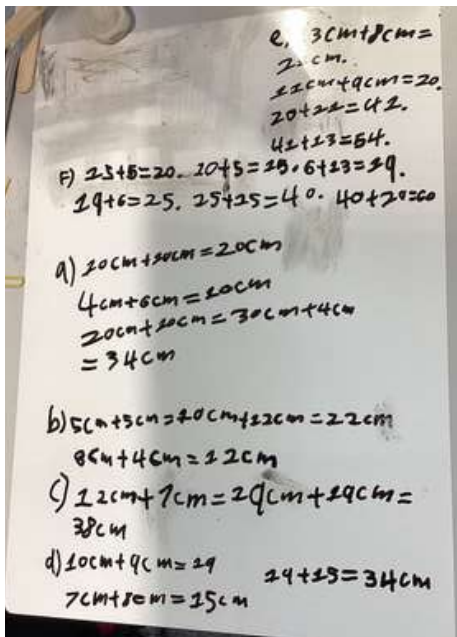 e, 3cm+8cm=
11cm.
11cm+9cm=20.
20+21=41.
41+13=54.
F) 15+5=20. 10+5=15. 6+13=19.
19+6=25. 25+15=40. 40+20=60
a) 10cm+10cm=20cm
4cm+6cm=10cm
20cm+10cm=30cm+4cm
=34cm
b) 5cm+5cm=10cm+12cm=22cm
8cm+4cm=12cm
c) 12cm+7cm=19cm+19cm=
38cm
d) 10cm+9cm=19
19+15=34cm
7cm+8cm=15cm